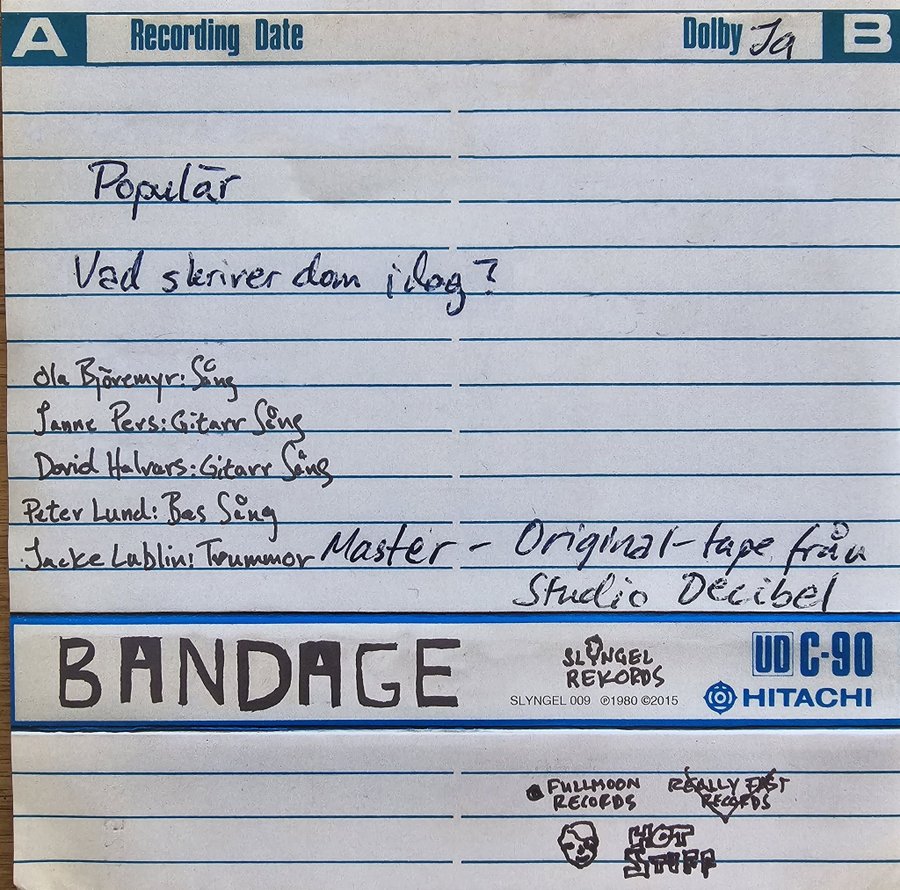 A Recording Date Dolby Ja B
Populär
Vad skriver dom idag?
Ola Björemyr: Sång
Janne Pers: Gitarr Sång
David Halvars: Gitarr Sång
Peter Lund: Bas Sång
Jacke Lublin: Trummor
Master - Original-tape från
Studio Decibel
BANDAGE
SLYNGEL
REKORDS
SLYNGEL 009 ℗1980 ©2015
UD C-90
HITACHI
FULLMOON
RECORDS
REALLY FAST
RECORDS
HOT
STUFF